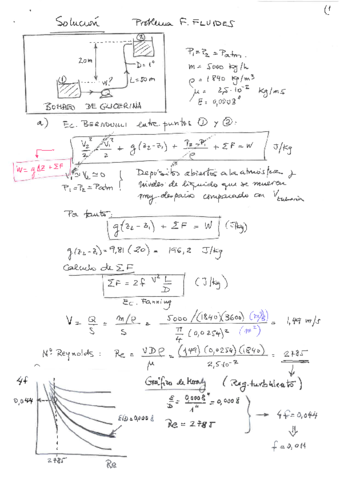 (1
Solución Problema F. FLUIDOS
②
20m
D=1"
①
w?
L=50m
BOMBEO DE GLICERINA
P₁=P₂=Patm.
m = 5000 kg/h
ρ = 1840 kg/m³
μ = 2,5·10⁻² kg/m s
ε = 0,0008"
a) Ec. BERNOUILLI entre puntos ① y ②:
V₂²/2 - V₁²/2 + g(z₂-z₁) + (P₂-P₁)/ρ + ΣF = W J/kg
W = gΔz + ΣF
V₁≈V₂≈0
P₁=P₂=Patm
Depósitos abiertos a la atmósfera y
niveles de líquido que se mueven
muy despacio comparado con V
Por tanto:
g(z₂-z₁) + ΣF = W (J/kg)
g(z₂-z₁) = 9,81 (20) = 196,2 J/kg
Calculo de ΣF
ΣF = 2f V² L/D (J/kg)
Ec. Fanning
V = Q/S = (m/ρ)/S = (5000/(1840)(3600))/(π/4 (0,0254)²) (m³/s)/(m²) = 1,49 m/s
Nº Reynolds: Re = VDρ/μ = (1,49)(0,0254)(1840)/2,5·10⁻² = 2785
Gráfico de Moody (Reg. turbulento)
ε/D = 0,0008"/1" = 0,0008
Re = 2785
4f = 0,044
f = 0,011
4f
0,044
ε/D = 0,0008
2785
Re